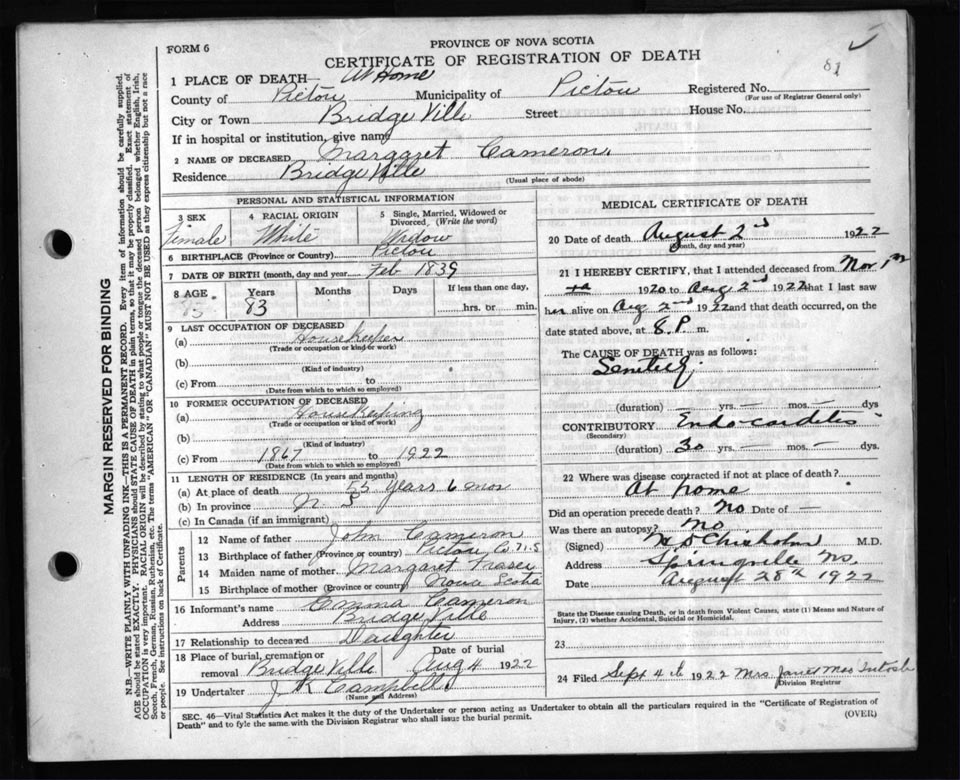 FORM 6
PROVINCE OF NOVA SCOTIA
CERTIFICATE OF REGISTRATION OF DEATH
81
1 PLACE OF DEATH— At Home
County of Pictou Municipality of Pictou Registered No.
(For use of Registrar General only)
City or Town Bridge Ville Street House No.
If in hospital or institution, give name
2 NAME OF DECEASED Margaret Cameron
Residence Bridge Ville
(Usual place of abode)
PERSONAL AND STATISTICAL INFORMATION
3 SEX Female
4 RACIAL ORIGIN White
5 Single, Married, Widowed or Divorced, (Write the word) Widow
6 BIRTHPLACE (Province or Country) Pictou
7 DATE OF BIRTH (month, day and year) Feb 1839
8 AGE Years Months Days If less than one day,
83 hrs. or min.
9 LAST OCCUPATION OF DECEASED
(a) Housekeeper
(Trade or occupation or kind or work)
(b)
(Kind of industry)
(c) From to
(Date from which to which so employed)
10 FORMER OCCUPATION OF DECEASED
(a) Housekeeping
(Trade or occupation or kind or work)
(b)
(Kind of industry)
(c) From 1867 to 1922
(Date from which to which so employed)
11 LENGTH OF RESIDENCE (In years and months)
(a) At place of death 53 years 6 mos
(b) In province N S
(c) In Canada (if an immigrant)
Parents
12 Name of father John Cameron
13 Birthplace of father (Province or country) Pictou Co N.S
14 Maiden name of mother Margaret Fraser
15 Birthplace of mother (Province or country) Nova Scotia
16 Informant's name Emma Cameron
Address Bridge Ville
17 Relationship to deceased Daughter
18 Place of burial, cremation or removal Bridge Ville Date of burial Aug 4 1922
19 Undertaker J K Campbell
(Name and Address)
MEDICAL CERTIFICATE OF DEATH
20 Date of death August 2nd 1922
(Month, day and year)
21 I HEREBY CERTIFY, that I attended deceased from Nov 1st
1920 to Aug 2nd 1922 that I last saw
her alive on Aug 2nd 1922 and that death occurred, on
date stated above, at 8 P. m.
The CAUSE OF DEATH was as follows:
Senility
(duration) — yrs. — mos. — dys
CONTRIBUTORY Endocarditis
(Secondary)
(duration) 30 yrs. — mos. — dys.
22 Where was disease contracted if not at place of death?
At home
Did an operation precede death? No Date of —
Was there an autopsy? No
(Signed) Chisholm M.D.
Address Springville NS
Date August 28th 1922
State the Disease causing Death, or in death from Violent Causes, state (1) Means and Nature of Injury, (2) whether Accidental, Suicidal or Homicidal.
23
24 Filed Sept 4th 1922 Mrs. Janet MacIntosh
Division Registrar
SEC. 46—Vital Statistics Act makes it the duty of the Undertaker or person acting as Undertaker to obtain all the particulars required in the "Certificate of Registration of
Death" and to fyle the same with the Division Registrar who shall issue the burial permit.
(OVER)
MARGIN RESERVED FOR BINDING
N.B.—WRITE PLAINLY WITH UNFADING INK—THIS IS A PERMANENT RECORD. Every item of information should be carefully supplied.
AGE should be stated EXACTLY. PHYSICIANS should STATE CAUSE OF DEATH in plain terms, so that it may be properly classified. Exact statement of
OCCUPATION is very important. RACIAL ORIGIN will be described by stating to what people or tongue the deceased person belonged whether English, Irish,
Scotch, French, German, Russian, Ruthenian, etc. The terms "AMERICAN" OR "CANADIAN" MUST NOT BE USED as they express citizenship but not a race
or people. See instructions on back of Certificate.